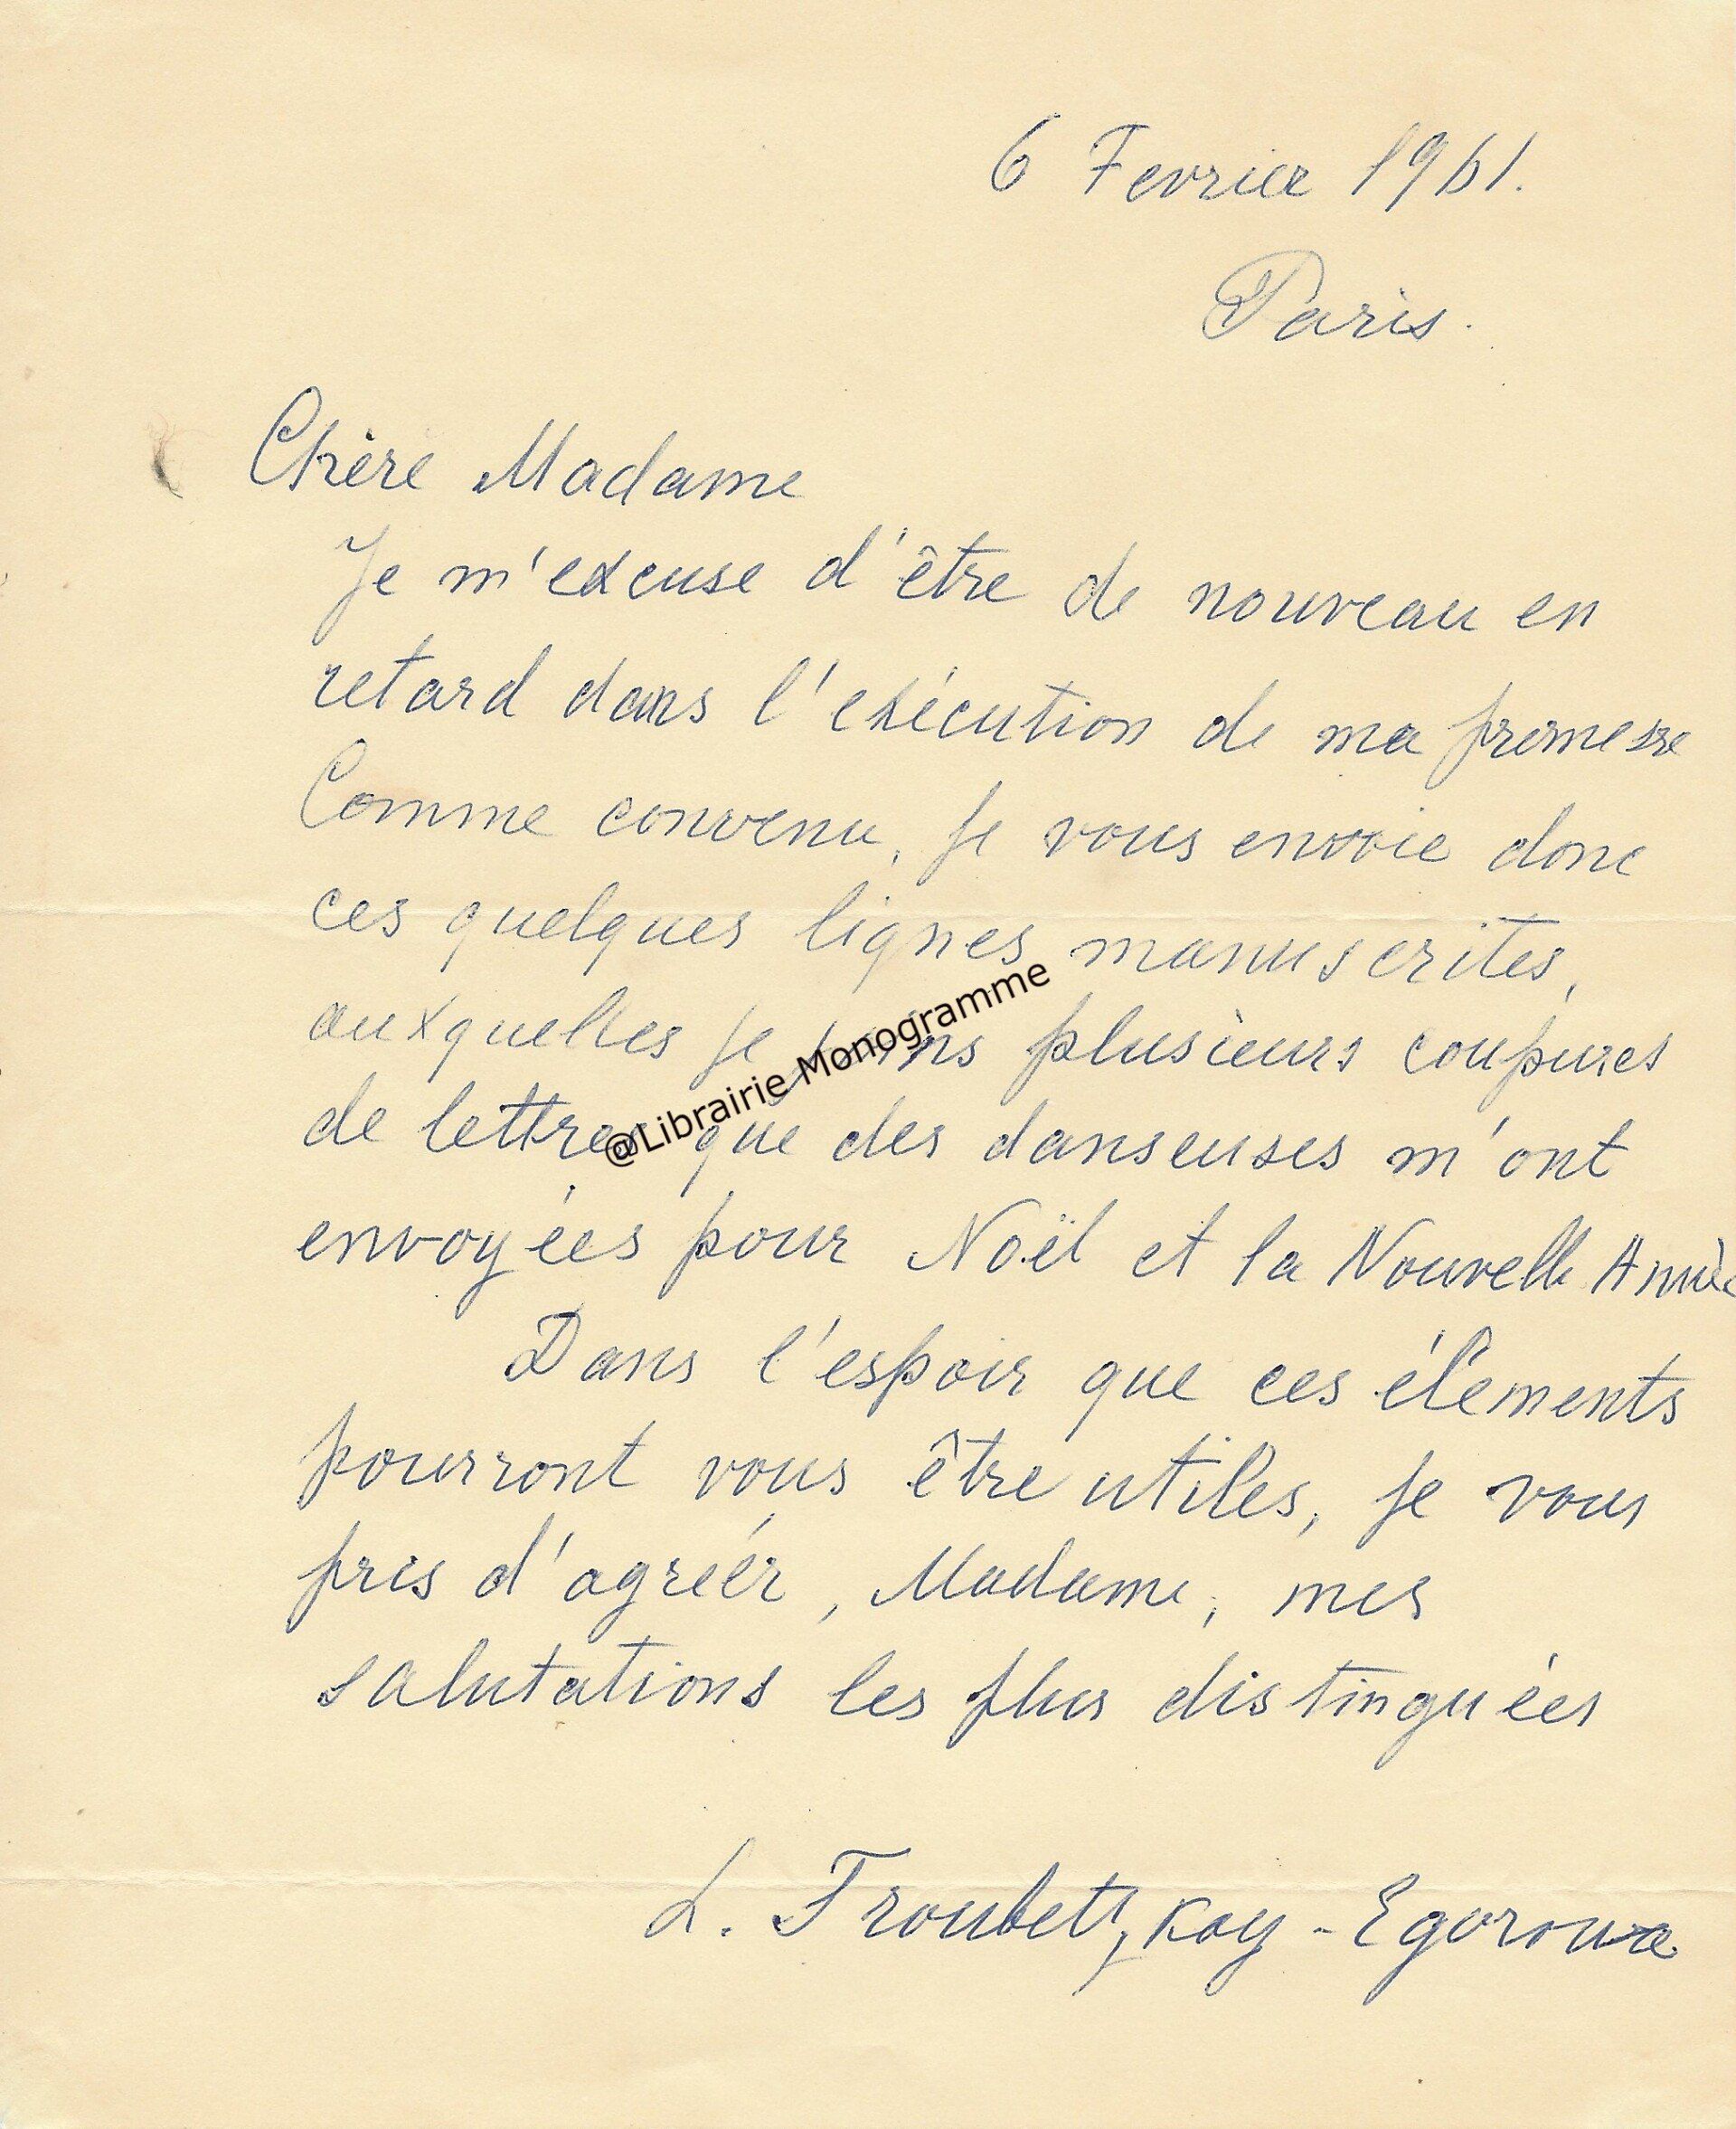 6 Fevrier 1961.
Paris.
Chère Madame
Je m'excuse d'être de nouveau en
retard dans l'exécution de ma promesse
Comme convenu, je vous envoie donc
ces quelques lignes manuscrites,
auxquelles je joins plusieurs coupures
de lettres que des danseuses m'ont
envoyées pour Noël et la Nouvelle Année
Dans l'espoir que ces éléments
pourront vous être utiles, je vous
pris d'agréér, Madame, mes
salutations les plus distinguées
L. Troubetzkoy - Egorowa
@Librairie Monogramme